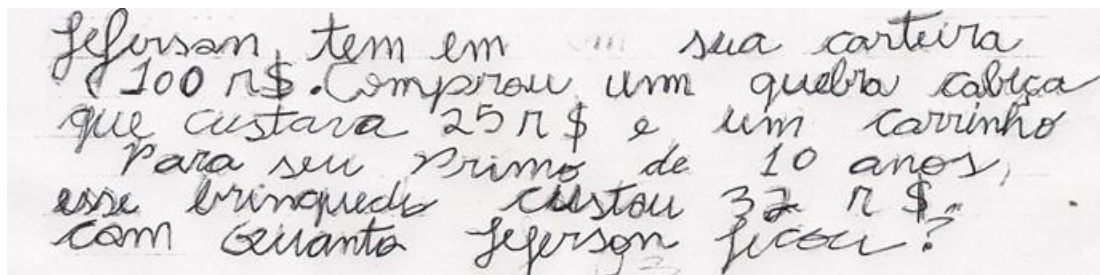 Jeferson, tem em sua carteira
100 R$. Comprou um quebra cabeça
que custara 25 R$ e um carrinho
Para seu Primo de 10 anos,
esse brinquedo custou 32 R$.
Com Quanto Jeferson ficou?